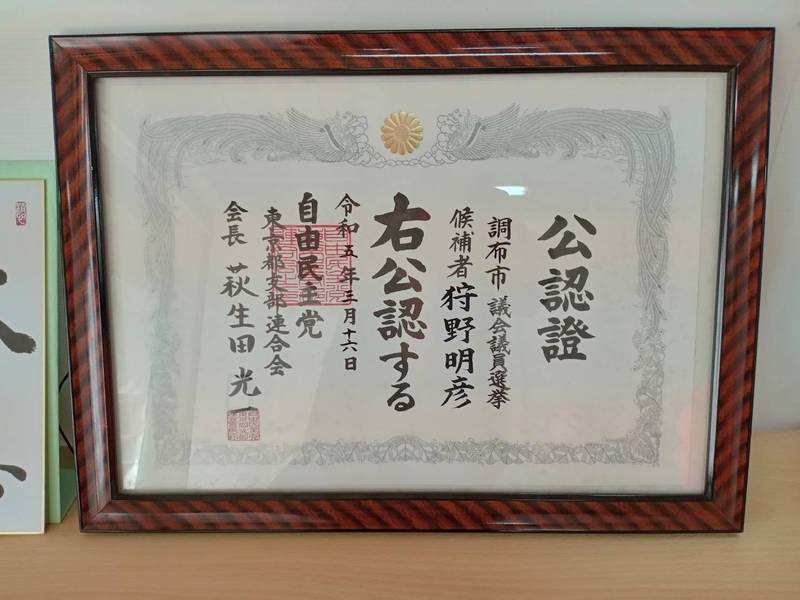 公認證
調布市議会議員選挙
候補者 狩野明彦
右公認する
令和五年三月十六日
自由民主党
東京都支部連合会
会長 萩生田光一